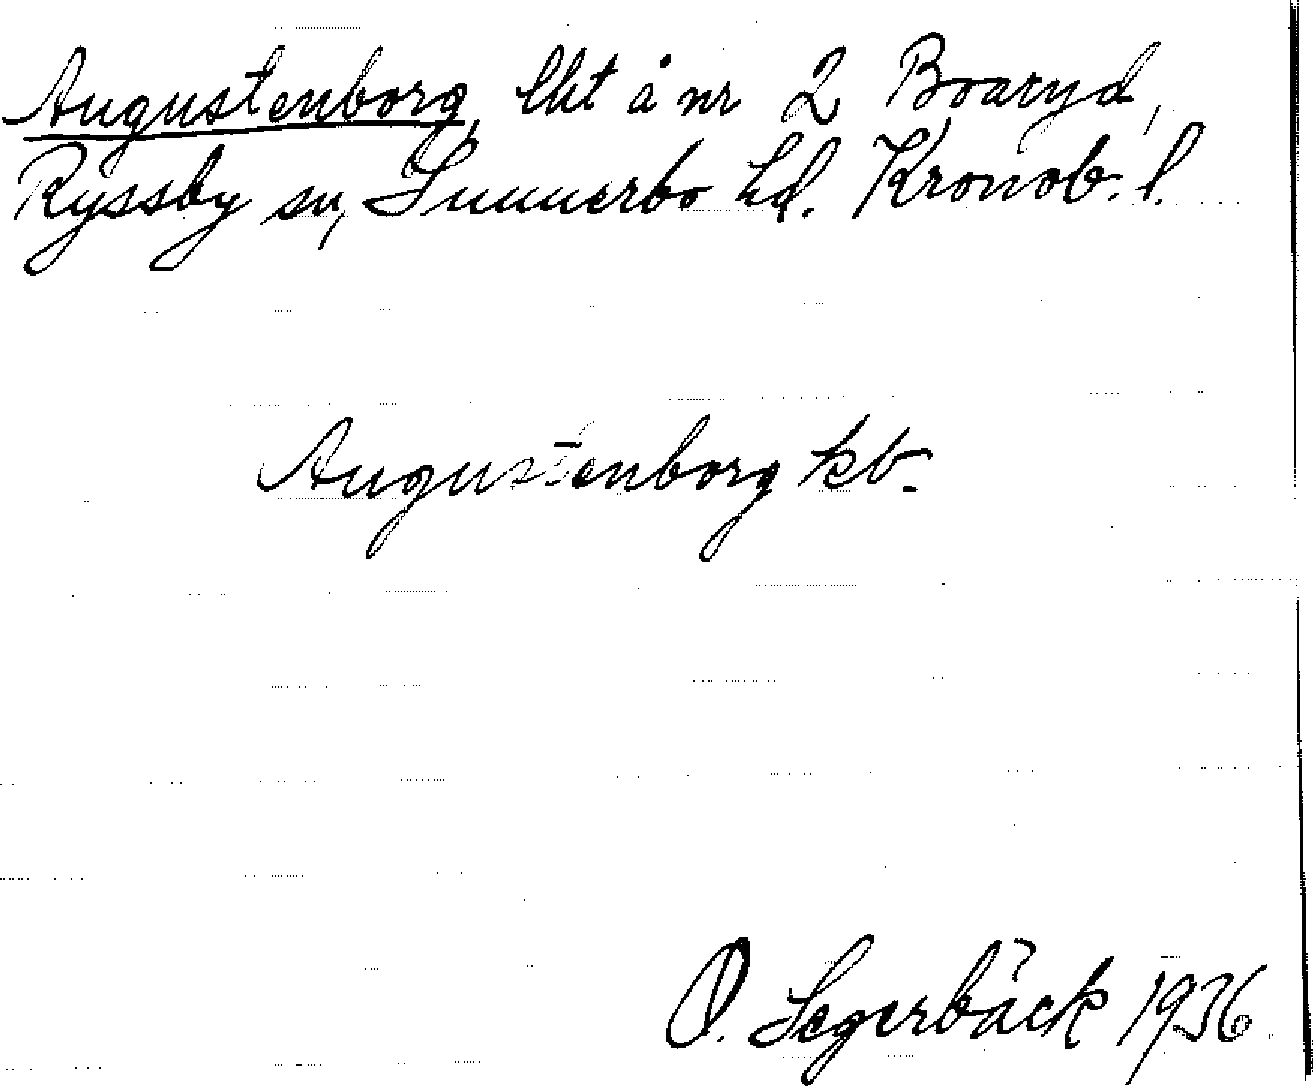 Augustenborg, lht å nr 2 Boaryd,
Ryssby sn, Sunnerbo hd. Kronob. l.
Augustenborg kb.
O. Segerbäck 1936